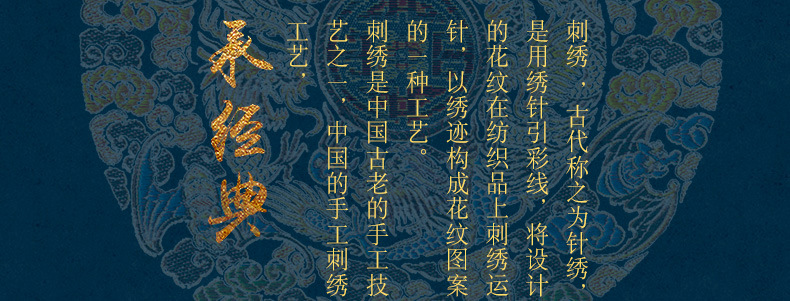 刺绣，古代称之为针绣，
是用绣针引彩线，将设计
的花纹在纺织品上刺绣运
针，以绣迹构成花纹图案
的一种工艺。
刺绣是中国古老的手工技
艺之一，中国的手工刺绣
工艺，
承经典